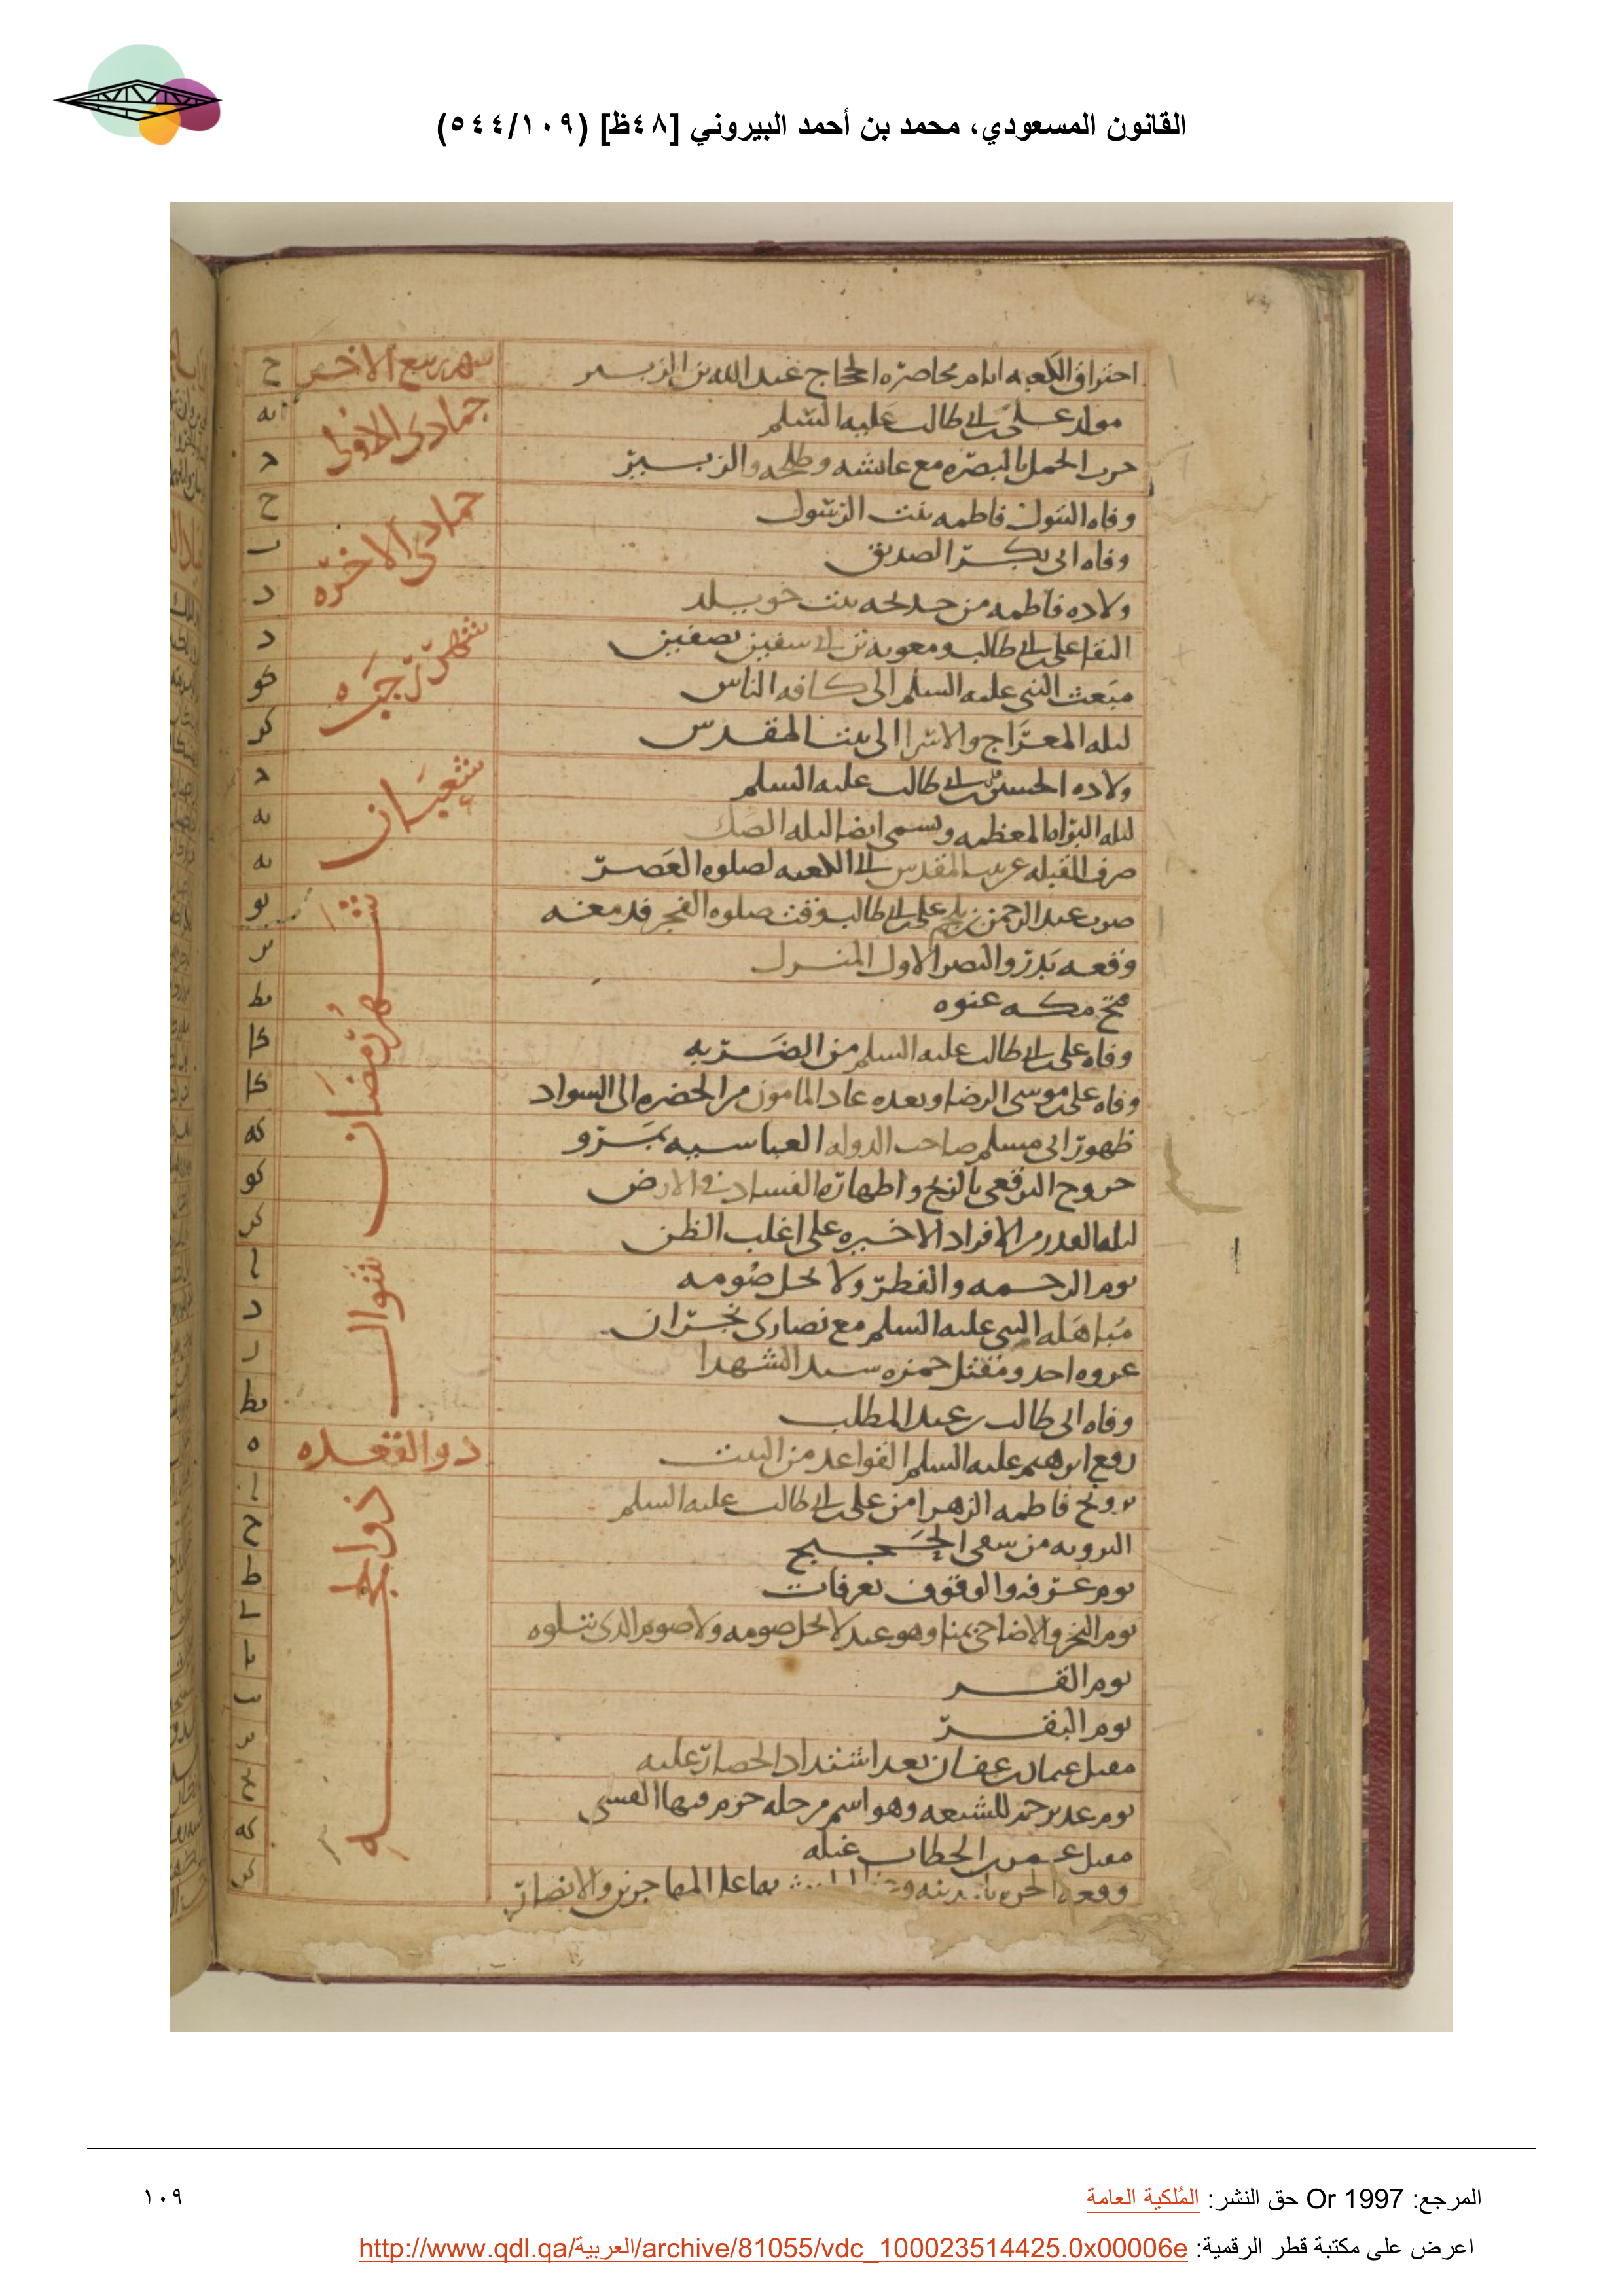 القانون المسعودي، محمد بن أحمد البيروني [٤٨ظ] (٥٤٤/١٠٩)
احتراق الكعبه ايام محاصره الحجاج عبد الله بن الزبير شهر ربيع الاخر ح
مولد على بن ابى طالب عليه السلم جمادى الاولى
حرب الجمل بالبصره مع عايشه وطلحه والزبير
وفاه البتول فاطمه بنت الرسول جمادى الاخره ح
وفاه ابى بكر الصديق
ولاده فاطمه من خديجه بنت خويلد
التقا على بن ابى طالب ومعويه بن ابى سفين بصفين شهر رجب
مبعث النبى عليه السلم الى كافه الناس كو
ليله المعراج والاسرا الى بيت المقدس كز
ولاده الحسين بن على بن ابى طالب عليه السلم شعبان
ليله البراه المعظمه وتسمى ايضا ليله الصك يه
صرف القبله عن بيت المقدس الى الكعبه لصلوه العصر يه
ضرب عبد الرحمن بن ملجم على بن ابى طالب وقت صلوه الفجر فدمغه شهر رمضان يو
وقعه بدر والنصر الاول المنزل يز
فتح مكه عنوه يط
وفاه على بن ابى طالب عليه السلم من الضربه كا
وفاه على بن موسى الرضا وبعده عاد المامون من الخضره الى السواد كا
ظهور ابى مسلم صاحب الدوله العباسيه بمرو كه
خروج البرقعى بالزنج واظهاره الفساد فى الارض كو
ليله القدر من الافراد الاخيره على اغلب الظن كز
يوم الرحمه والفطر ولا يحل صومه شوال ا
مباهله النبى عليه السلم مع نصارى نجران د
غزوه احد ومقتل حمزه سيد الشهدا
وفاه ابى طالب بن عبد المطلب يط
رفع ابرهيم عليه السلم القواعد من البيت ذو القعده ه
تزويج فاطمه الزهرا من على بن ابى طالب عليه السلم ذو الحجه ا
الترويه من سعى الحجيج ح
يوم عرفه والوقوف بعرفات ط
يوم النحر والاضاحى بمنا وهو عيد لا يحل صومه ولا صوم الذى تتلوه ى
يوم القر يا
يوم النفر يب
مقتل عثمان بن عفان بعد اشتداد الحصار عليه
يوم غدير خم للشيعه وهو اسم مرحله
مقتل عمر بن الخطاب غيله كه
وقعه الحره بالمدينه المهاجرين والانصار
المرجع: Or 1997 حق النشر: المُلكية العامة
١٠٩
اعرض على مكتبة قطر الرقمية: http://www.qdl.qa/العربية/archive/81055/vdc_100023514425.0x00006e